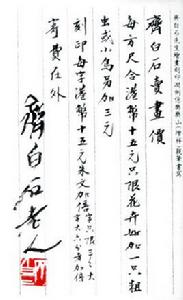 齊白石賣畫價
每方尺合港幣十五元只限花卉如加一只粗
虫或小鳥另加三元
刻印每字港幣十五元朱文加倍
寄費在外
齊白石老人